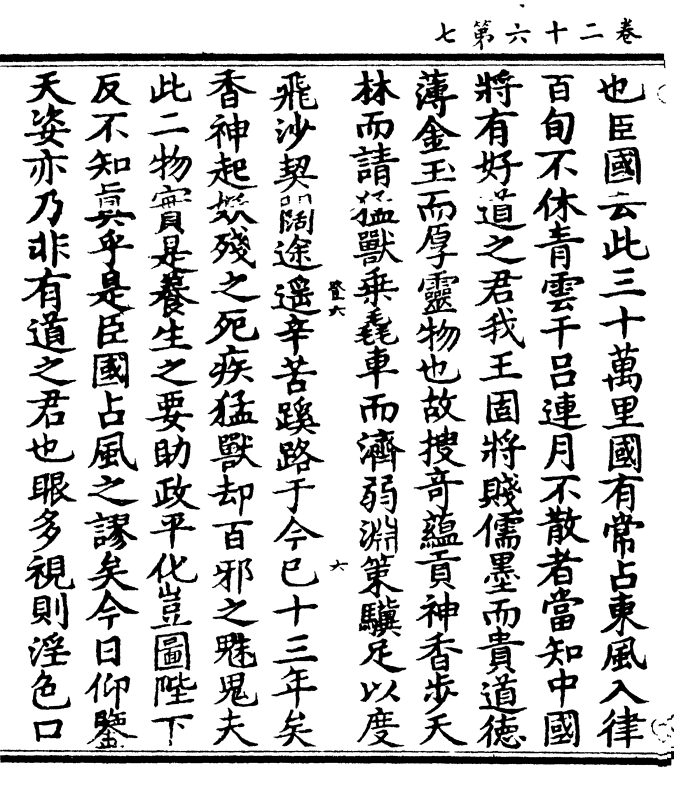 卷二十六第七
也臣國云此三十萬里國有常占東風入律
百旬不休青雲干呂連月不散者當知中國
將有好道之君我王固將賤儒墨而貴道德
薄金玉而厚靈物也故搜奇蘊貢神香步天
林而請猛獸乗毳車而濟弱淵策驥足以度
飛沙契闊途遥辛苦蹊路于今已十三年矣
香神起妖殘之死疾猛獸却百邪之魅鬼夫
此二物實是養生之要助政平化豈圖陛下
反不知眞乎是臣國占風之謬矣今日仰鑒
天姿亦乃非有道之君也眼多視則淫色口
六